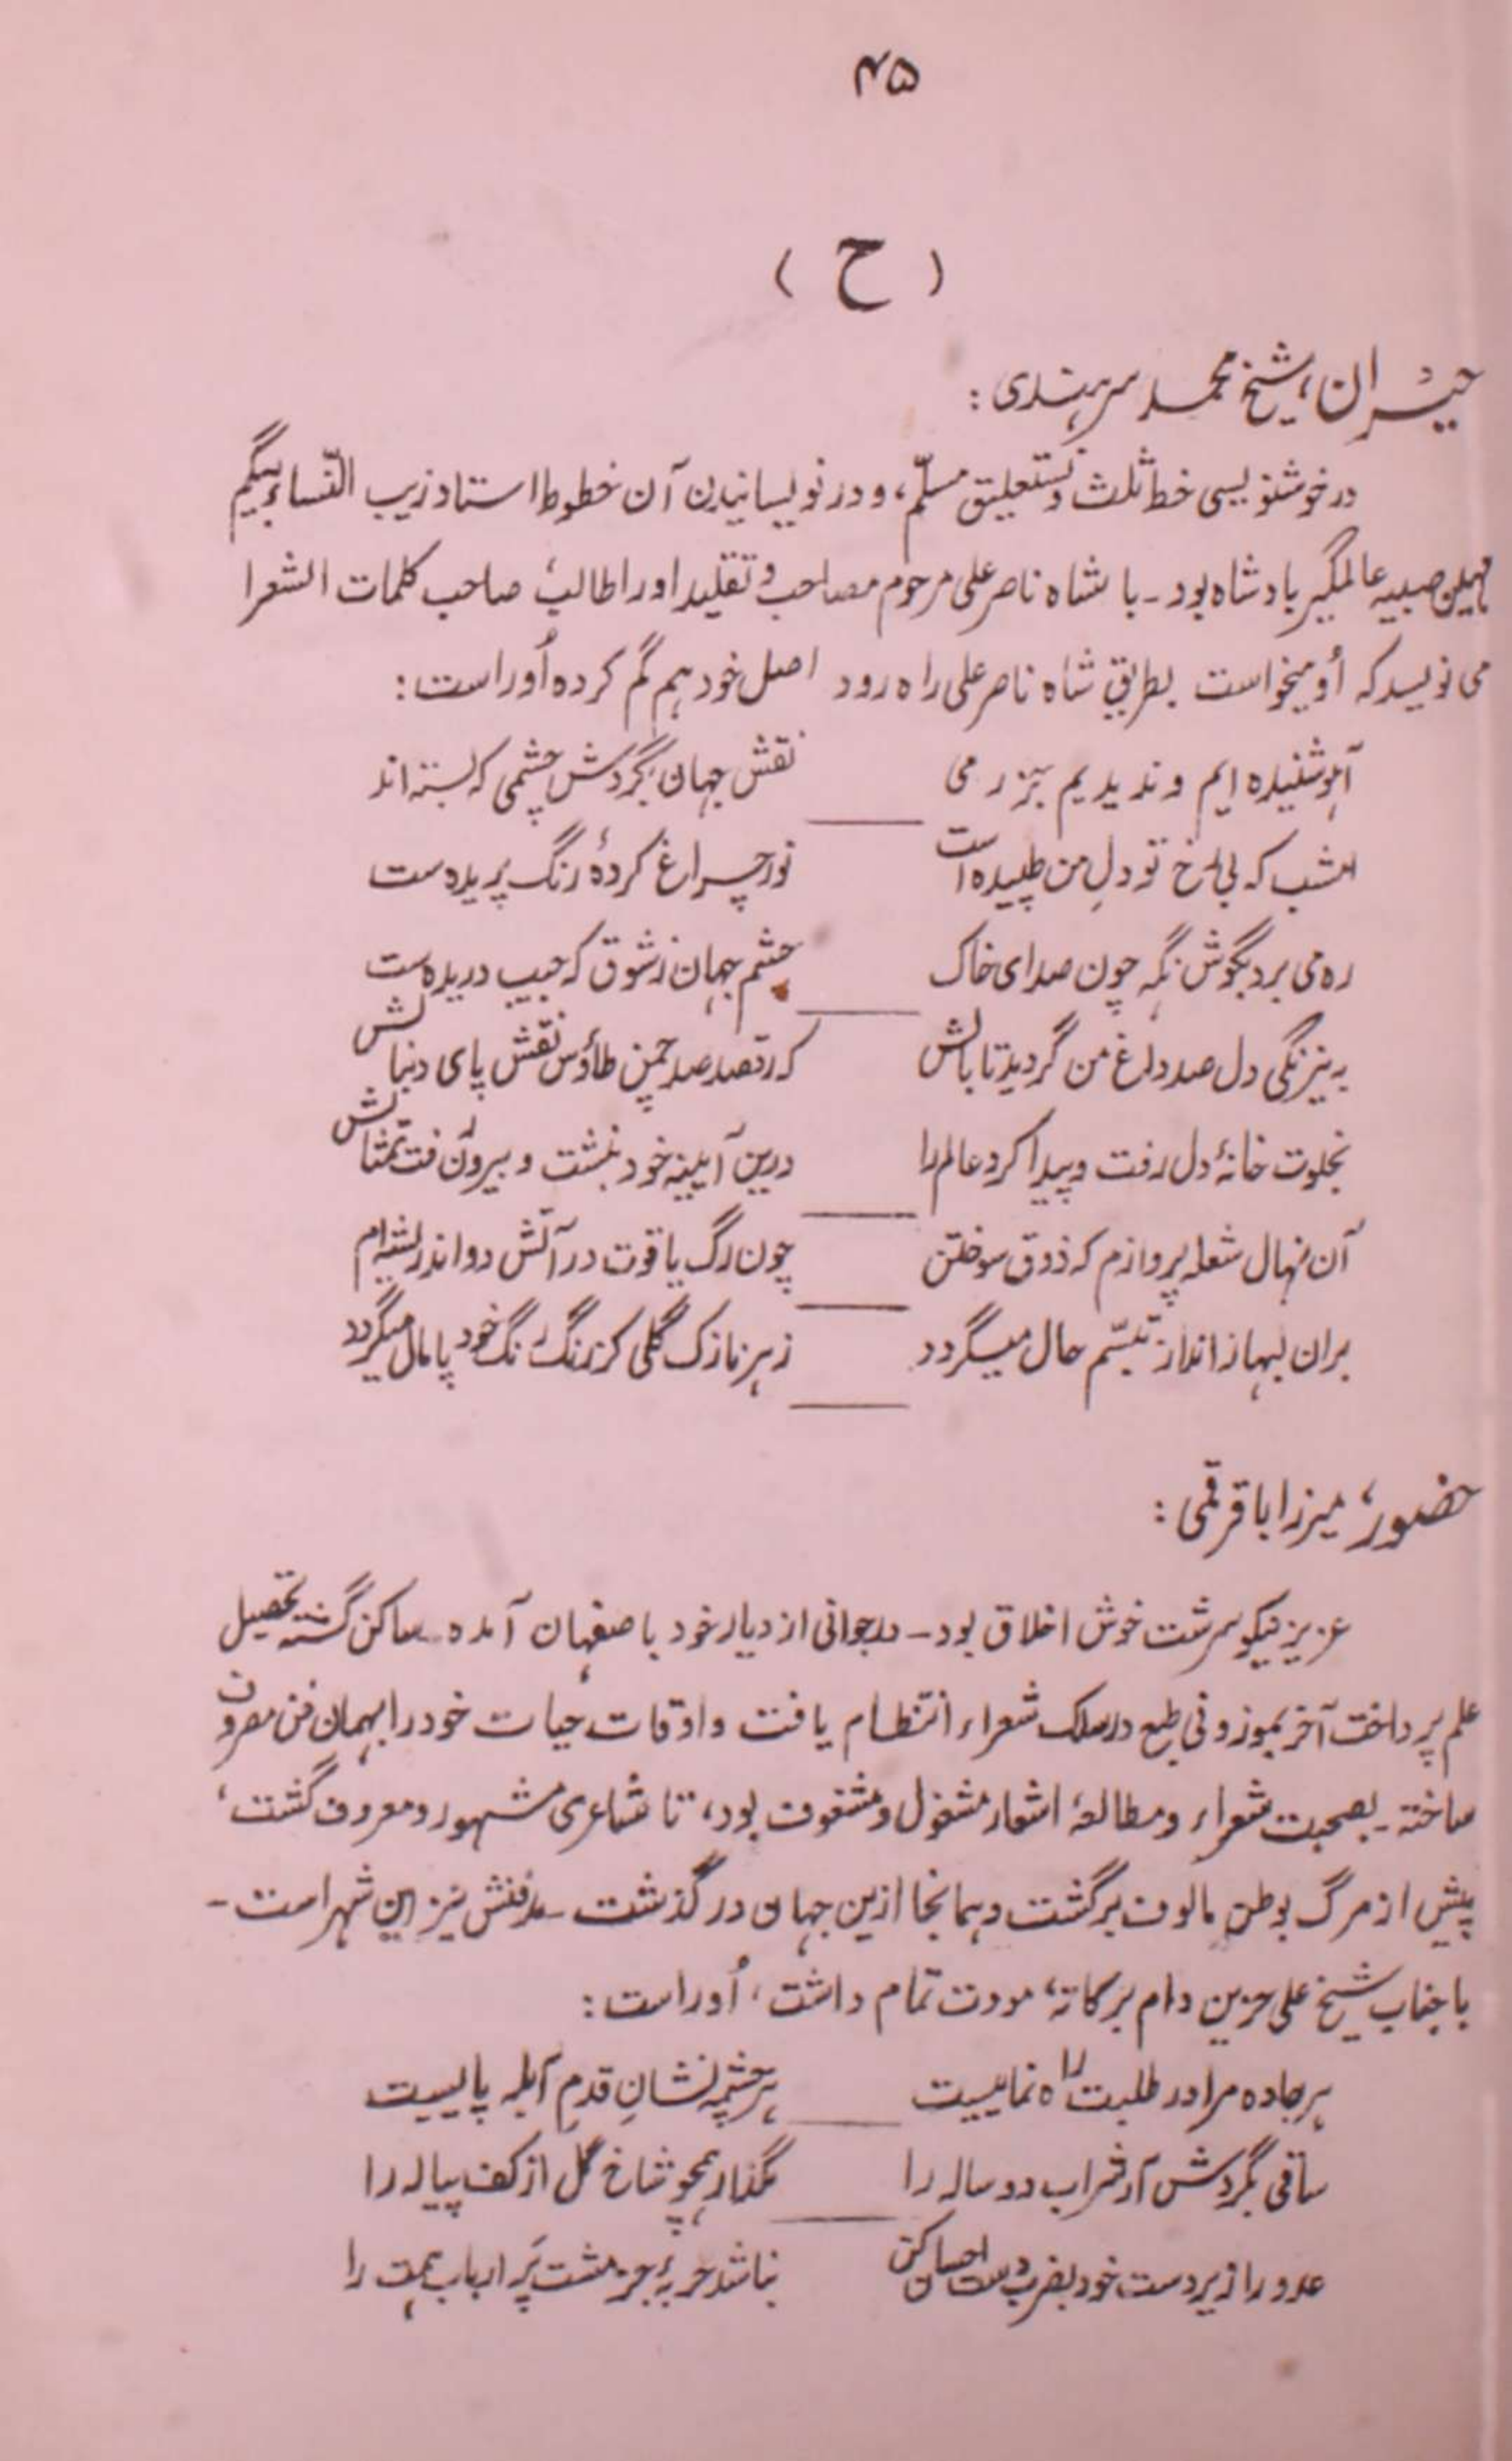 ۴۵
( ح )
حیران، شیخ محمد سرہندی :
در خوشنویسی خط ثلث و نستعلیق مسلّم، و در نویسانیدن آن خطوط استاد زیب النّساء بیگم
مہین صبیہ عالمگیر بادشاہ بود ۔ با شاہ ناصر علی مرحوم مصاحب و تقلید او را طالب، صاحب کلمات الشعرا
می نویسد کہ اُو میخواست بطریقِ شاہ ناصر علی راہ رود اصل خود ہم گم کردہ اُوراست :
آہو شنیدہ ایم و ندیدیم بجز رمی نقش جہان بگردش چشمی کہ بستہ اند
امشب کہ بی رخ تو دلِ من طپیدہ است نور چراغ کردۂ رنگ پریدہ ست
رہ می برد بگوش نگہ چون صدای خاک چشم جہان ز شوق کہ جیب دریدہ ست
بہ نیرنگی دل صد داغ من گردید تا بالش کہ رقصد صد چمن طاؤس نقش پای دنبالش
بخلوت خانۂ دل رفت و پیدا کرد عالم را درین آیینہ خود بنشست و بیرون رفت تمثالش
آن نہال شعلہ پروازم کہ ذوق سوختن چون رگ یاقوت در آتش دواند ریشہ ام
بران لبہا ز انداز تبسّم حال میگردد زہر نازک گلی کز رنگ رنگ خود پامال میگردد
حضور، میرزا باقر قمی :
عزیز نیکو سرشت خوش اخلاق بود ۔ در جوانی از دیار خود باصفہان آمدہ ۔ ساکن گشتہ تحصیل
علم پرداخت آخر بموزونی طبع در سلک شعراء انتظام یافت و اوقات حیات خود را بہمان فن مصروف
ساختہ ۔ بصحبت شعراء و مطالعۂ اشعار مشغول و مشغوف بود، تا شاعری مشہور و معروف گشت،
پیش از مرگ بوطن مالوف برگشت و ہمانجا ازین جہان در گذشت ۔ مدفنش نیز این شہر است ۔
با جناب شیخ علی حزین دام برکاتہ، مودت تمام داشت، اُوراست :
ہر جادہ مرا در طلبت راہ نماییست ہر چشمہ نشانِ قدمِ آبلہ پاییست
ساقی بگردش آر شراب دو سالہ را مگذار ہمچو شاخ گل از کف پیالہ را
عدو را زیر دست خود بضرب دست احسان کن نباشد حربۂ جز مشت پُر ارباب ہمت را